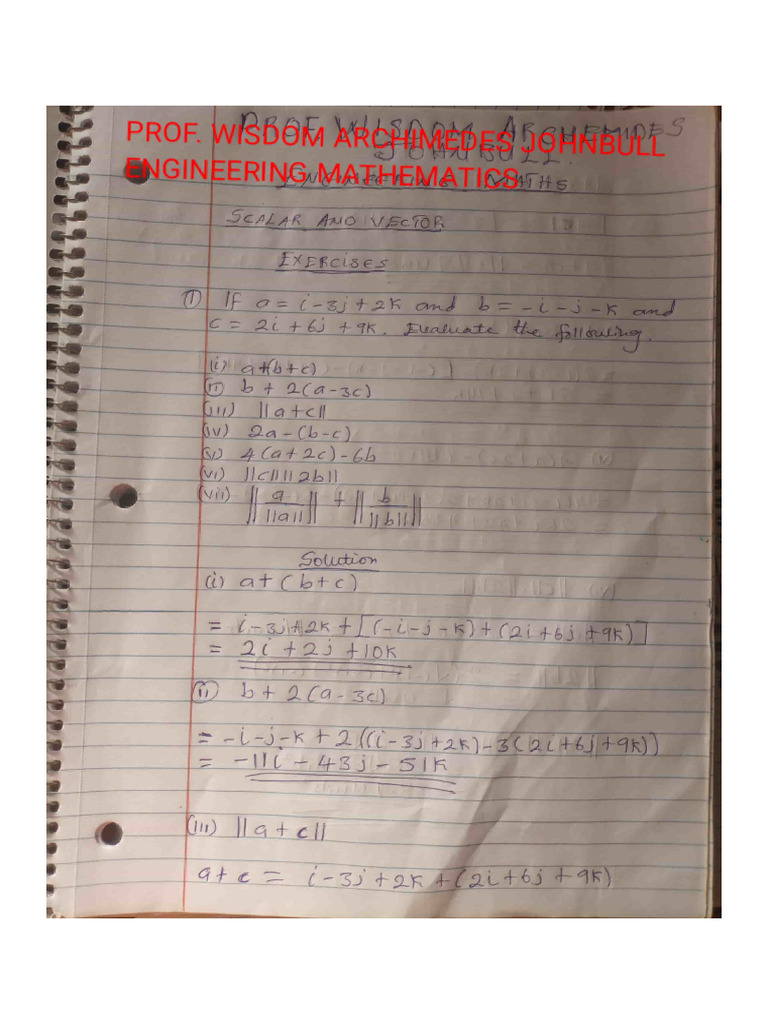 PROF. WISDOM ARCHIMEDES JOHNBULL
ENGINEERING MATHEMATICS
PROF WIISDOM ARCHEMIDES
JOHNBULL.
MATHS
SCALAR AND VECTOR
EXERCISES
① If a = i-3j+2k and b = -i-j-k and
c = 2i + 6j + 9k. Evaluate the following.
(i) a+(b+c)
(ii) b + 2(a-3c)
(iii) ||a+c||
(iv) 2a-(b-c)
(v) 4(a+2c)-6b
(vi) ||c|| ||2b||
(vii) || a/||a|| || + || b/||b|| ||
Solution
(i) a+(b+c)
= i-3j+2k+[(-i-j-k)+(2i+6j+9k)]
= 2i+2j+10k
(ii) b+2(a-3c)
= -i-j-k+2((i-3j+2k)-3(2i+6j+9k))
= -11i-43j-51k
(iii) ||a+c||
a+c = i-3j+2k+(2i+6j+9k)